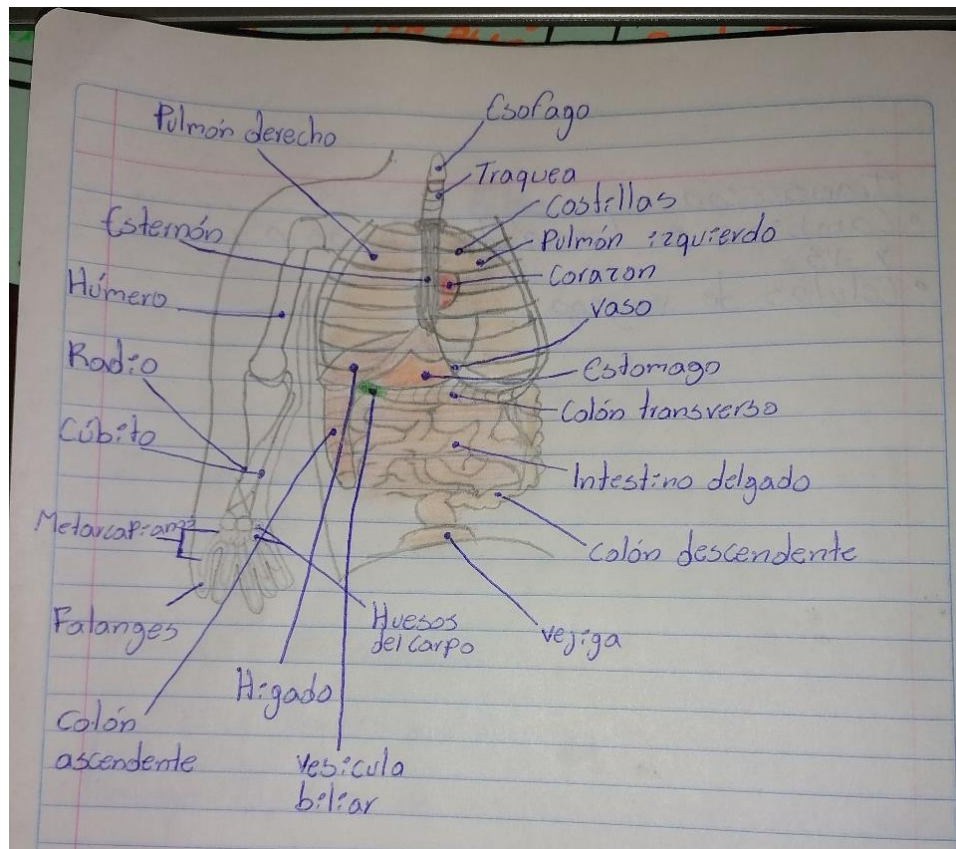 Esofago
Pulmón derecho
Traquea
Costillas
Esternón
Pulmón izquierdo
Corazon
Húmero
Vaso
Radio
Estomago
Colón transverso
Cúbito
Intestino delgado
Metarcapiano
Colón descendente
Falanges
Huesos
del carpo
vejiga
Hígado
Colón
ascendente
vesícula
biliar